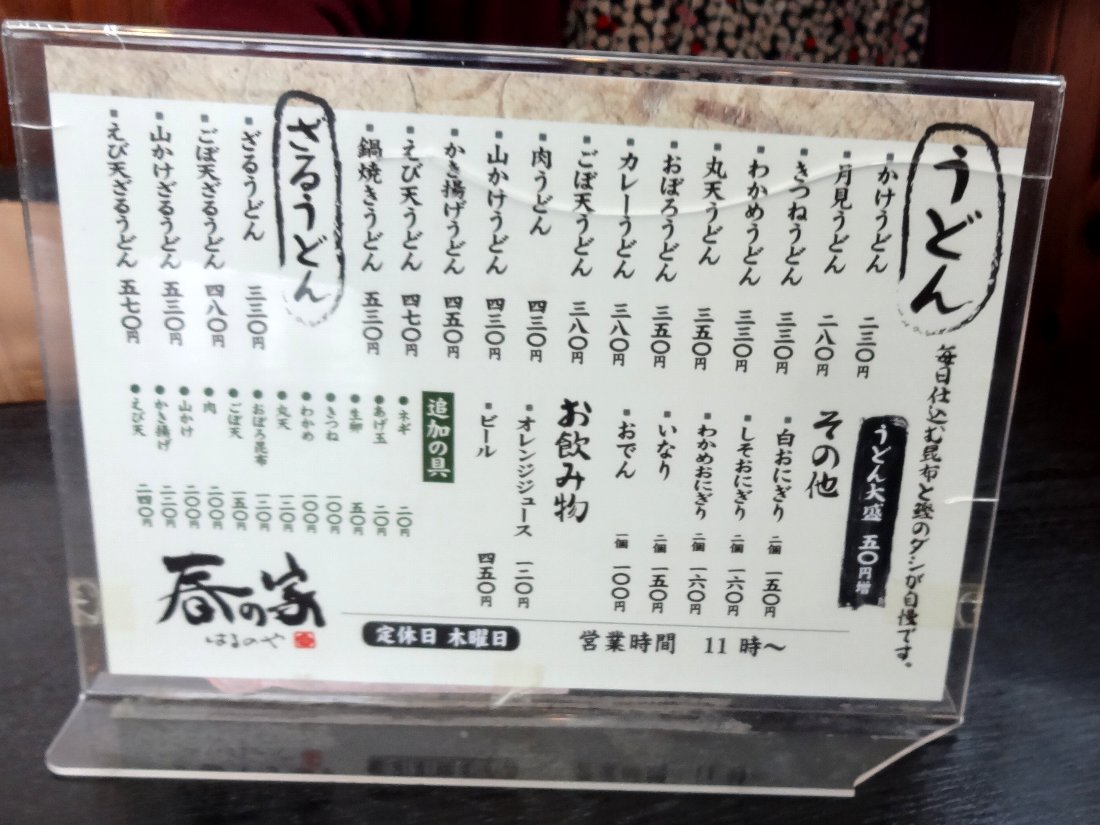 うどん
毎日仕込む昆布と鰹のダシが自慢です。
かけうどん 二三〇円
月見うどん 二八〇円
きつねうどん 三三〇円
わかめうどん 三三〇円
丸天うどん 三五〇円
おぼろうどん 三五〇円
カレーうどん 三八〇円
ごぼ天うどん 三八〇円
肉うどん 四三〇円
山かけうどん 四三〇円
かき揚げうどん 四五〇円
えび天うどん 四七〇円
鍋焼きうどん 五三〇円
ざるうどん
ざるうどん 三三〇円
ごぼ天ざるうどん 四八〇円
山かけざるうどん 五三〇円
えび天ざるうどん 五七〇円
うどん大盛 五〇円増
その他
白おにぎり 二個 一五〇円
しそおにぎり 二個 一六〇円
わかめおにぎり 二個 一六〇円
いなり 二個 一五〇円
おでん 一個 一〇〇円
お飲み物
オレンジジュース 一二〇円
ビール 四五〇円
追加の具
ネギ 二〇円
あげ玉 二〇円
生卵 五〇円
きつね 一〇〇円
わかめ 一〇〇円
丸天 一二〇円
おぼろ昆布 一二〇円
ごぼ天 一五〇円
肉 二〇〇円
山かけ 二〇〇円
かき揚げ 二二〇円
えび天 二四〇円
春の家
はるのや
定休日 木曜日
営業時間 11時～